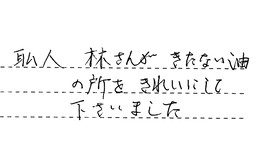 職人 林さんが きたない油
の所を きれいにして
下さいました